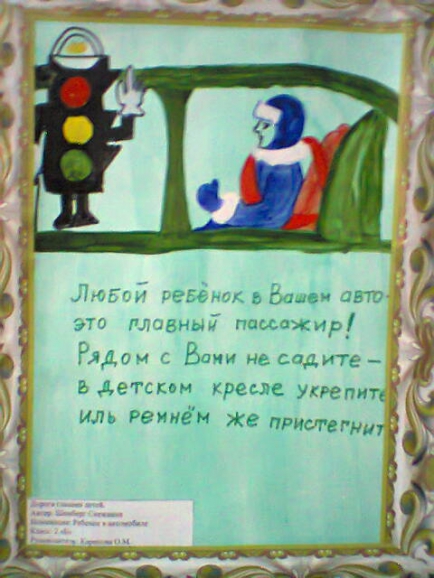 Любой ребёнок в Вашем авто-
это главный пассажир!
Рядом с Вами не садите –
в детском кресле укрепите
иль ремнём же пристегнит
Дорога глазами детей.
Автор:
Номинация: Ребенок в автомобиле
Класс: 2
Руководитель: О.М.